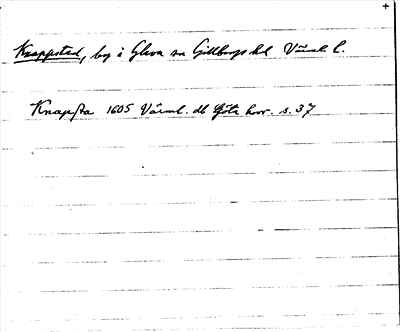 +
Knappstad, by i Glava sn Gillbergs hd Värml. l.
Knapsta 1605 Värml. db Göta hovr. s. 37